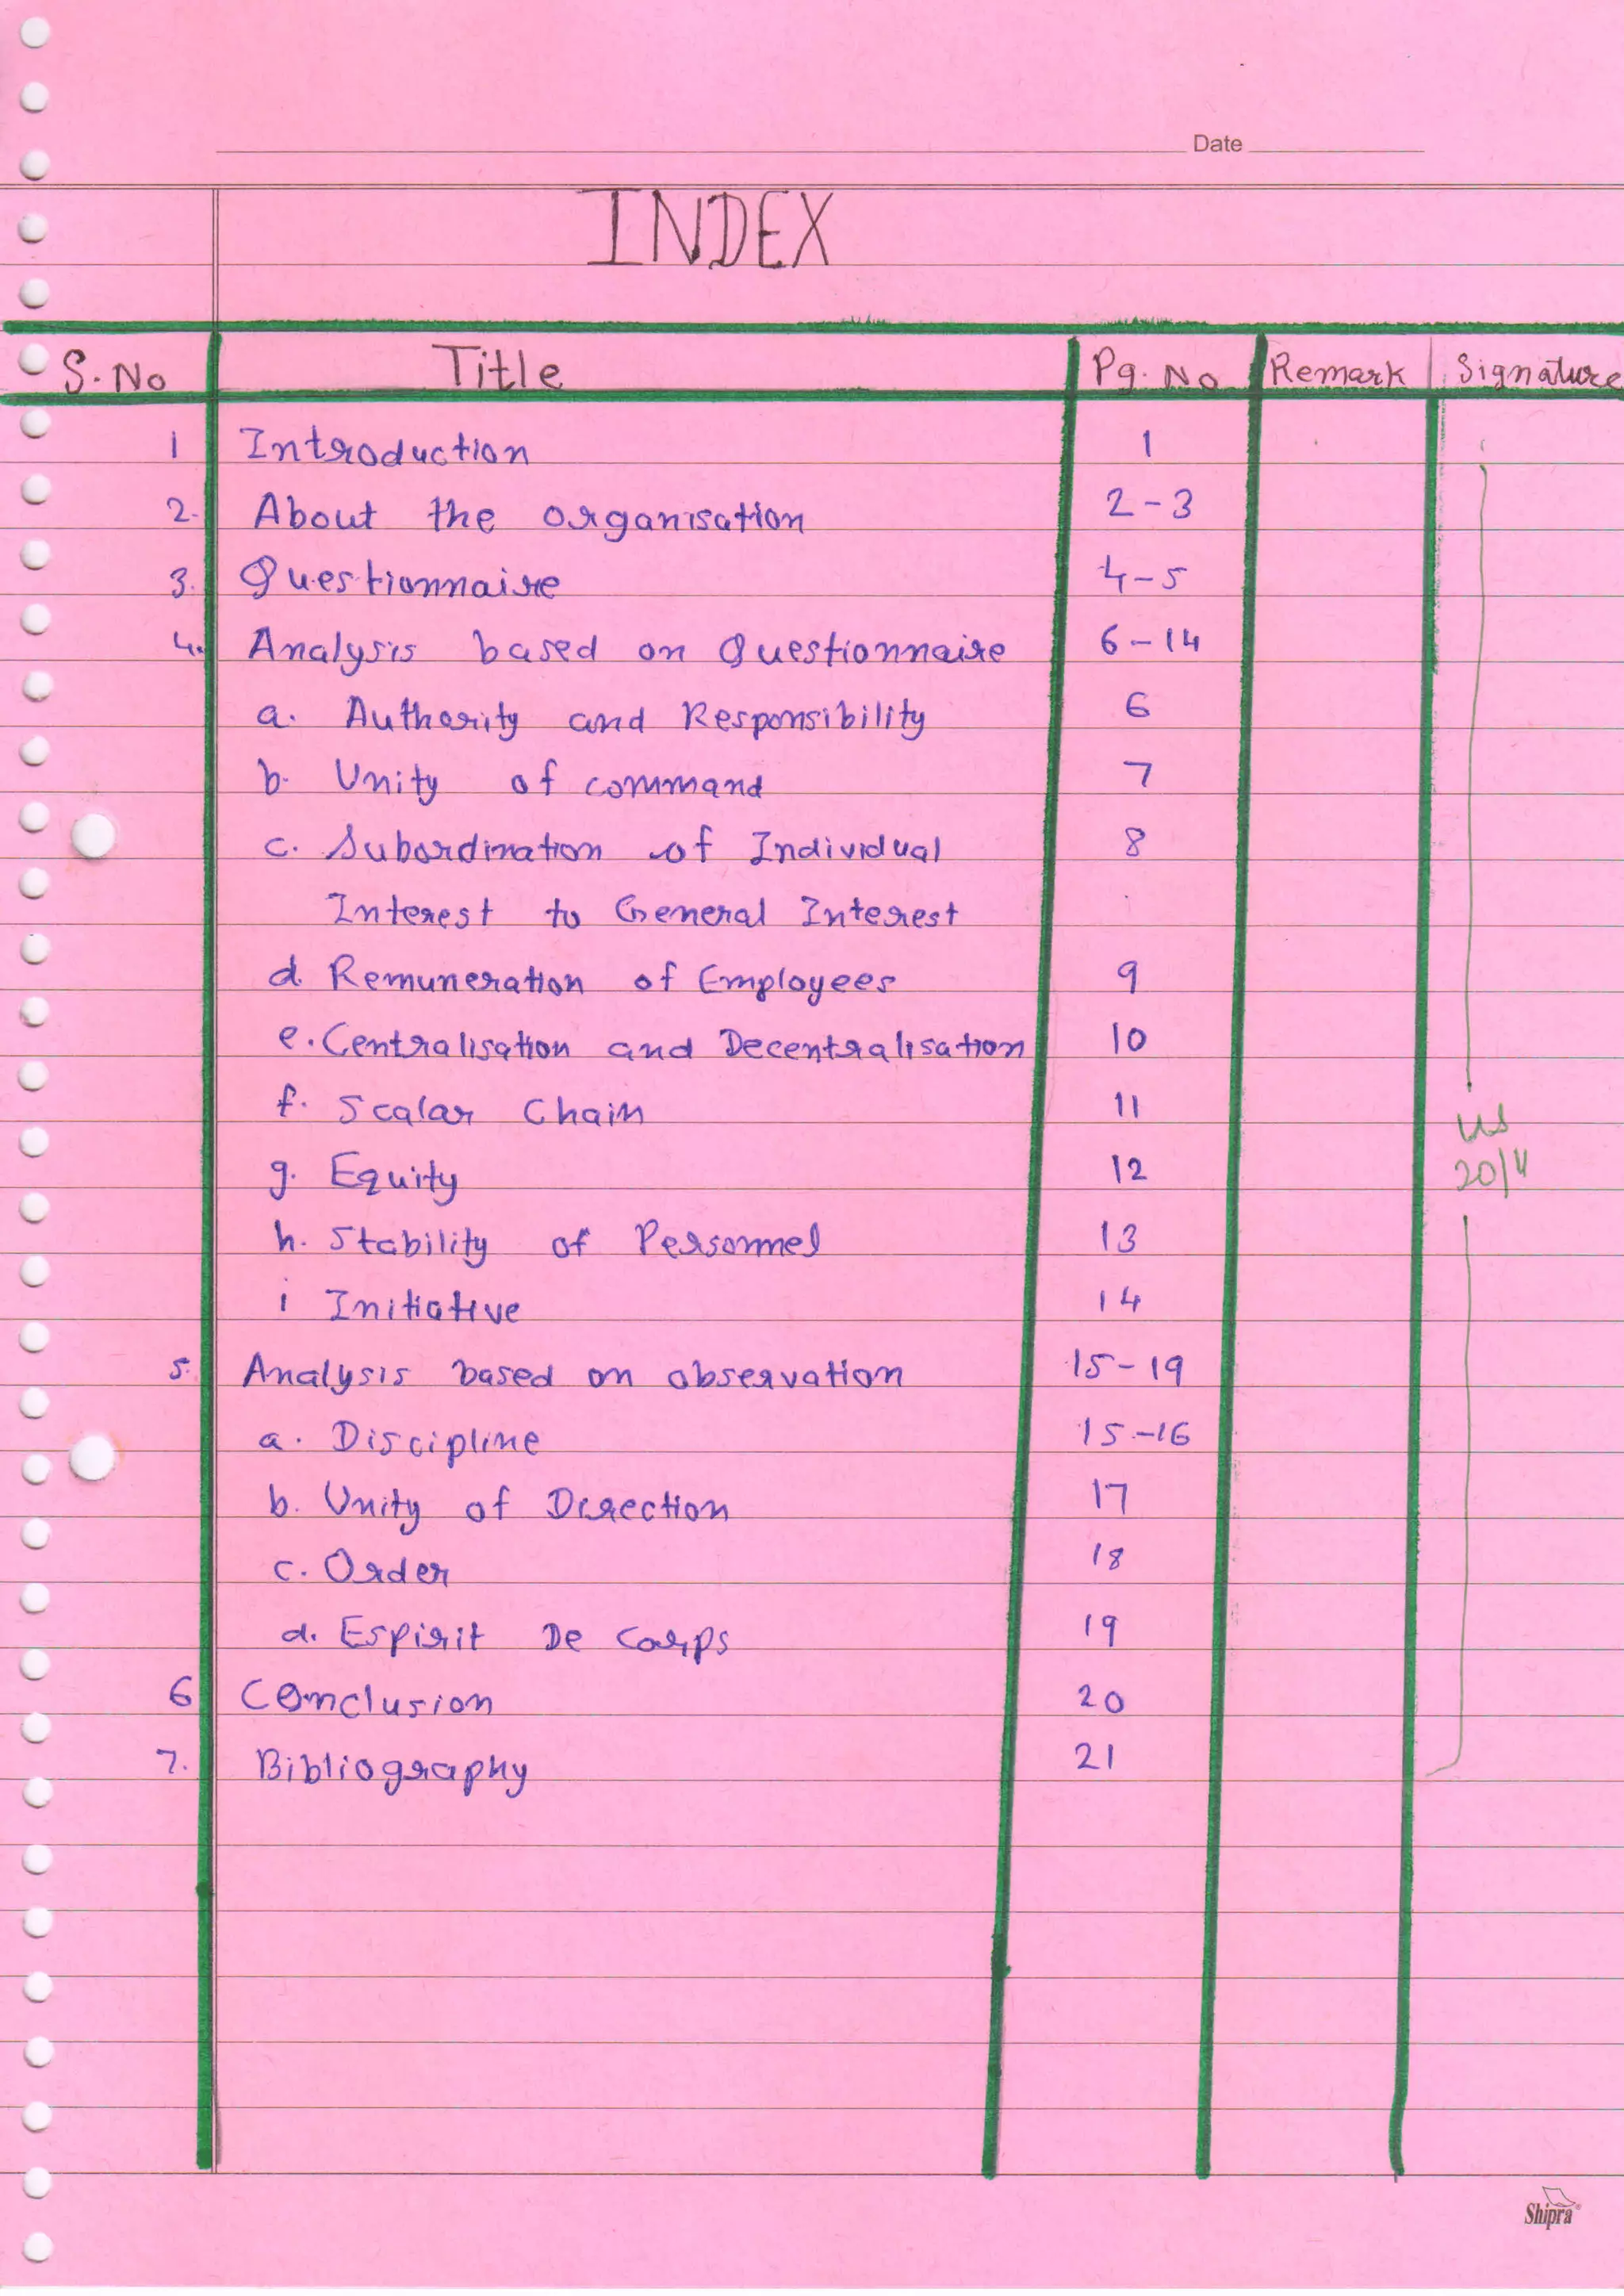 Date
INDEX
S.No Title Pg. No Remark Signature
1 Introduction 1
2. About the organisation 2-3
3. Questionnaire 4-5
4. Analysis based on Questionnaire 6-14
a. Authority and Responsibility 6
b. Unity of command 7
c. Subordination of Individual 8
Interest to General Interest
d. Remuneration of Employees 9
e. Centralisation and Decentralisation 10
f. Scalar Chain 11
g. Equity 12
20/4
h. Stability of Personnel 13
i Initiative 14
5. Analysis based on observation 15-19
a. Discipline 15-16
b. Unity of Direction 17
c. Order 18
d. Espirit De Corps 19
6 Conclusion 20
7. Bibliography 21
Shipra